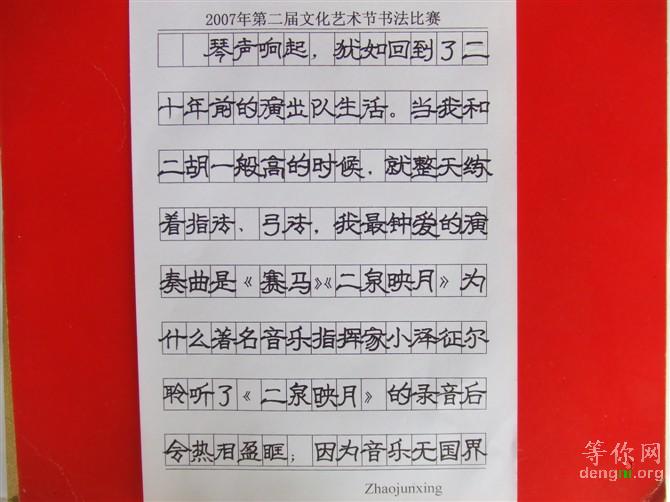 2007年第二届文化艺术节书法比赛
琴声响起，犹如回到了二
十年前的演出队生活。当我和
二胡一般高的时候，就整天练
着指法、弓法，我最钟爱的演
奏曲是《赛马》《二泉映月》为
什么著名音乐指挥家小泽征尔
聆听了《二泉映月》的录音后
令热泪盈眶；因为音乐无国界
Zhaojunxing
等你网
dengni.org